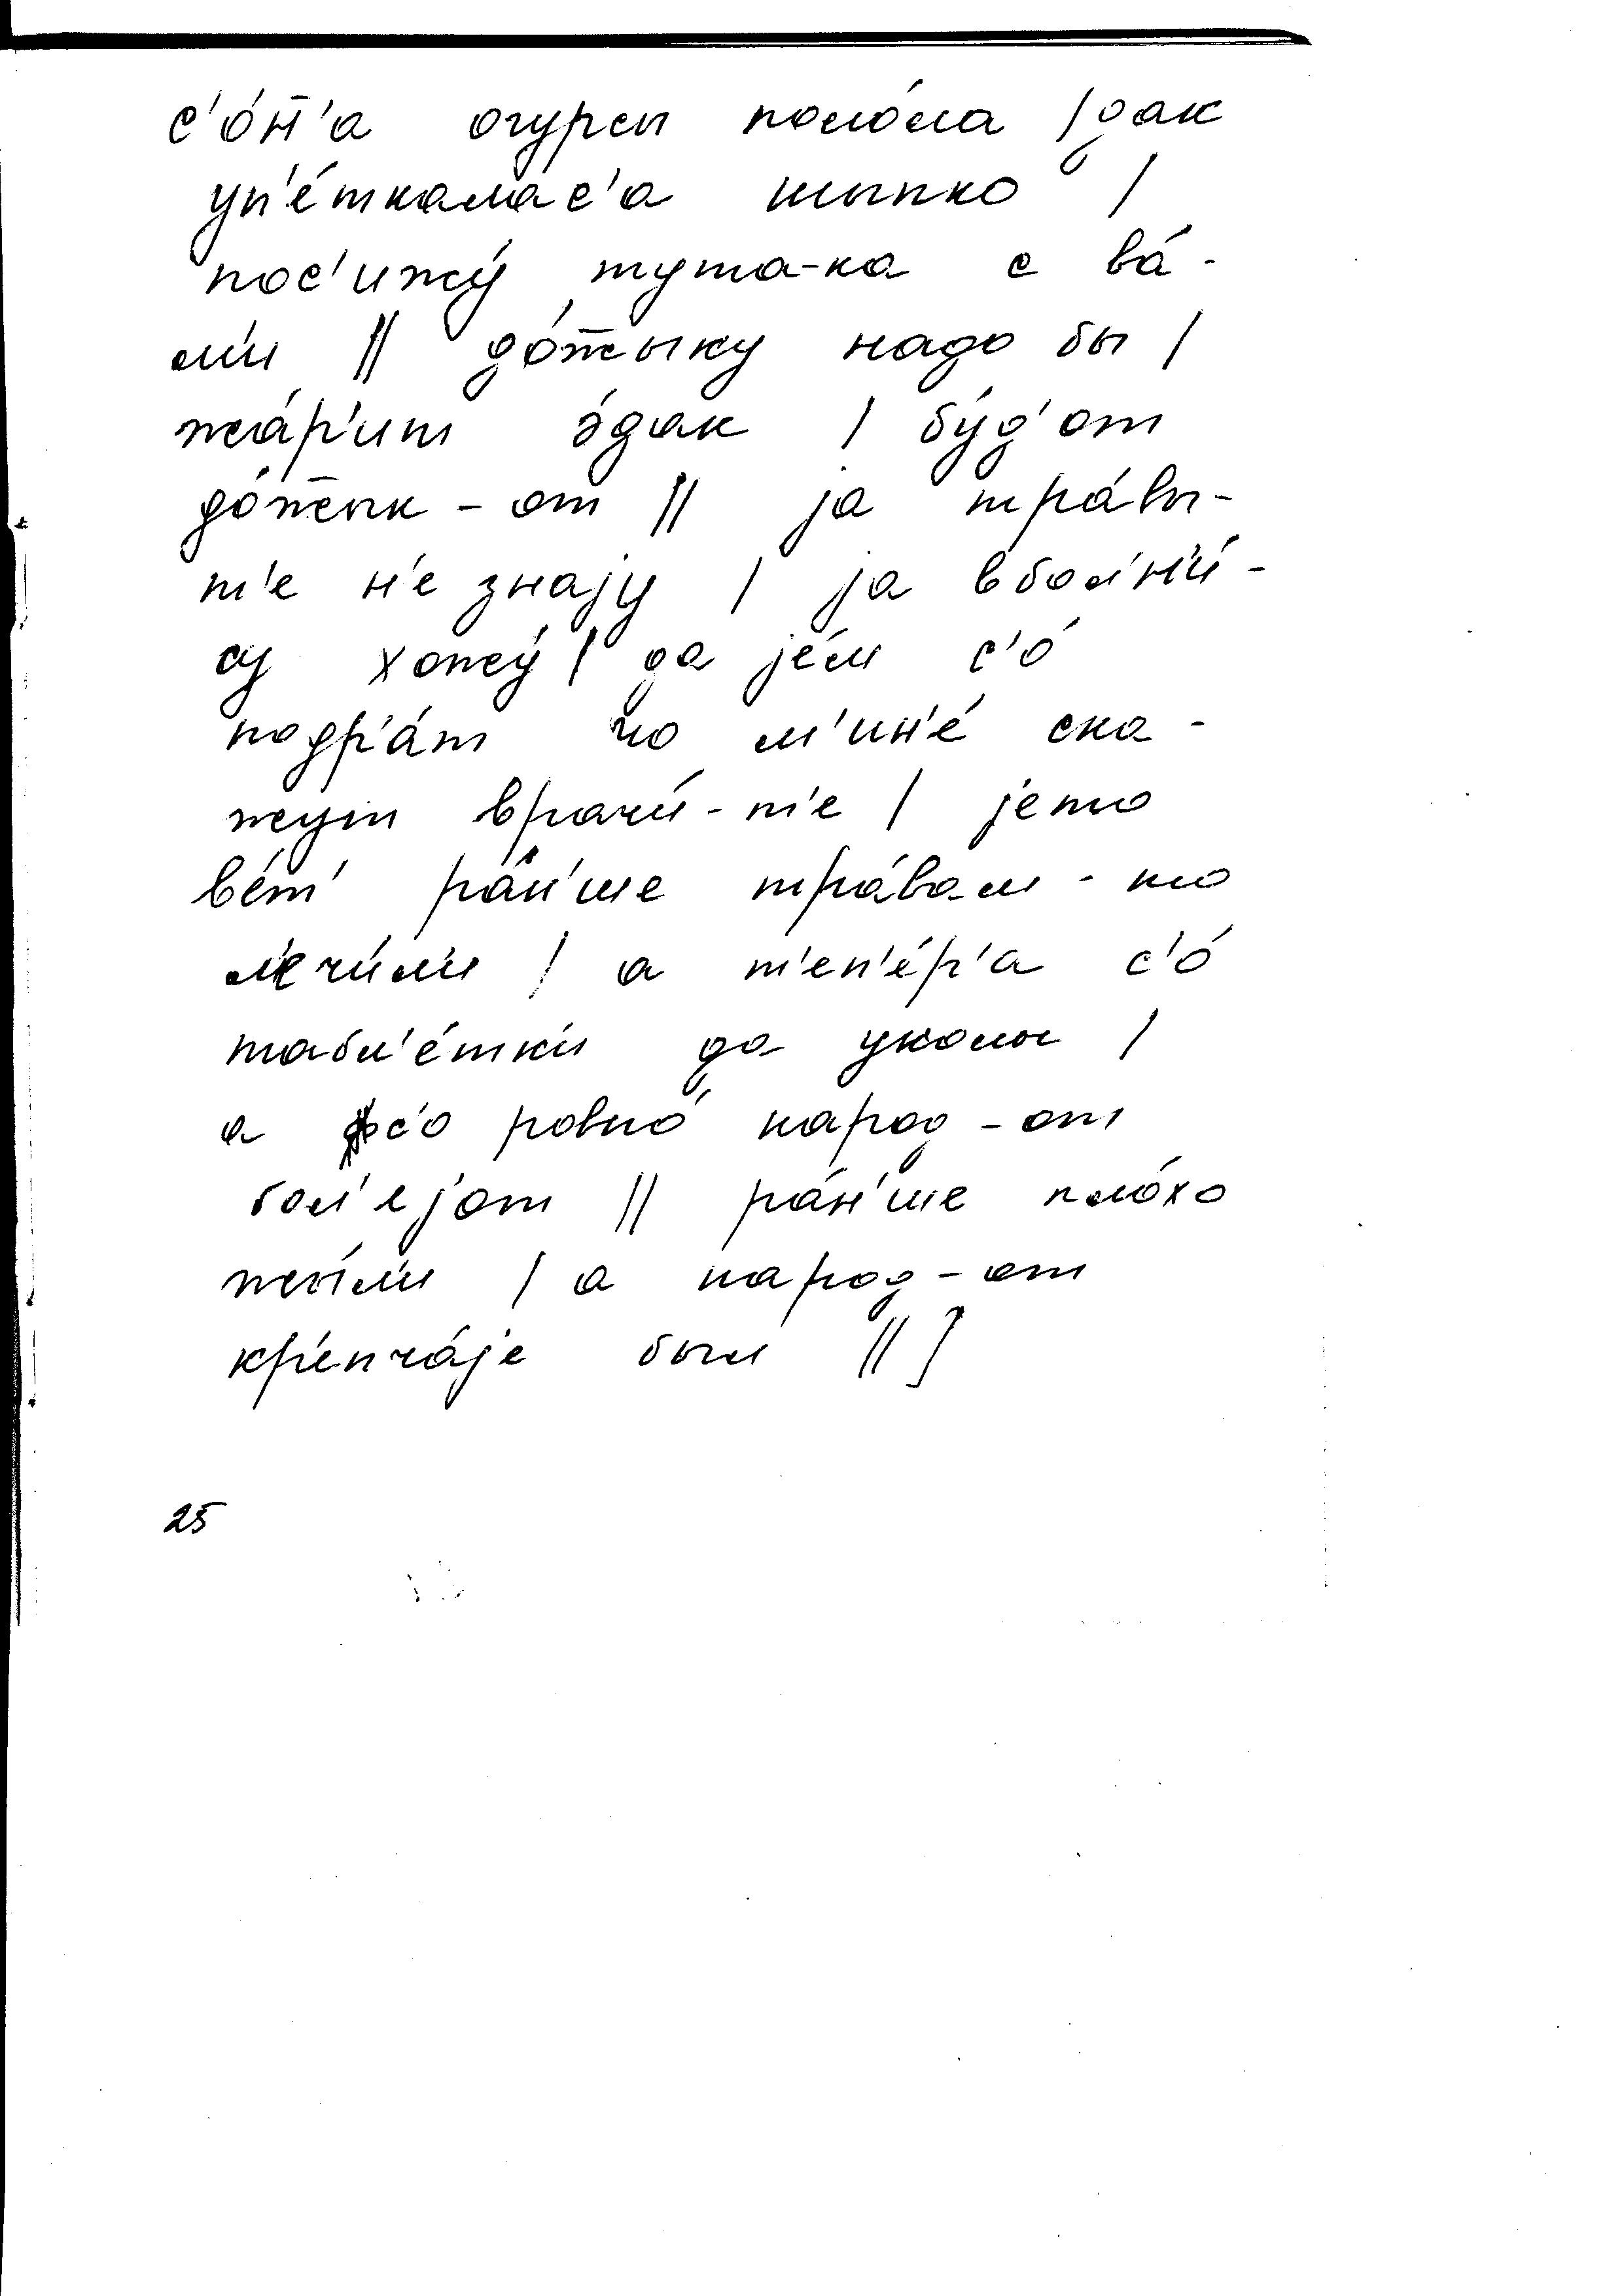 с'о́н̄'а огурсы поло́ла | дак
уп'е́ткалас'а шыпко |
пос'ижу́ тута-ка с ва́-
м'и || до́ж̄ыку надо бы |
жа́р'ит э́дак | бу́д'от
до́ж̄ык - от || ја тра́вы-
т'е н'е знају | ја в бол'н'и́-
су хожу́ | да је́м с'о́
подр'а́т чо м'ин'е́ ска-
жут врачи́ - т'е | јето
ве́т' ра́н'ше тра́вам - то
л'ечи́л'и | а т'еп'е́р'а с'о́
табл'е́тк'и да уколы |
а с'о ровно́ народ - от
бол'ејот || ра́н'ше пло́хо
жы́л'и | а народ - от
кр'епча́је был || ]
25